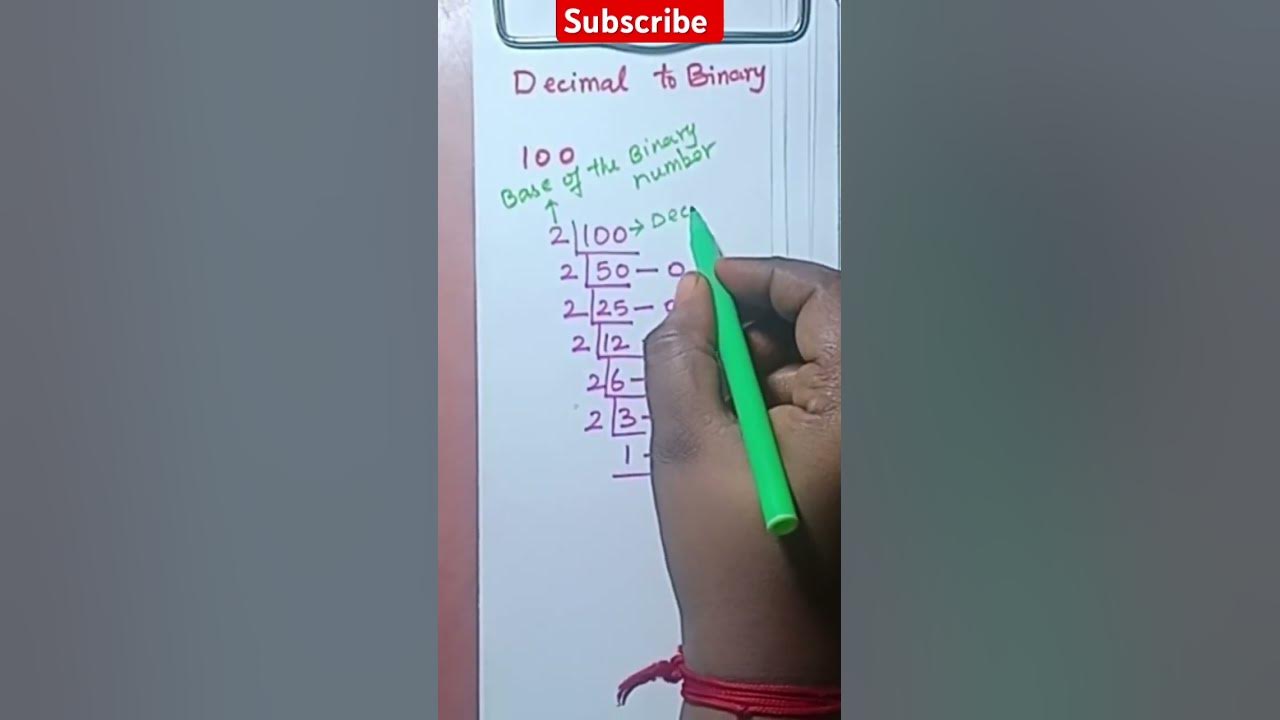 Subscribe
Decimal to Binary
100
Base of the Binary
number
2 100 → Dec
2 50 – 0
2 25 – 0
2 12
2 6 –
2 3 –
1 –